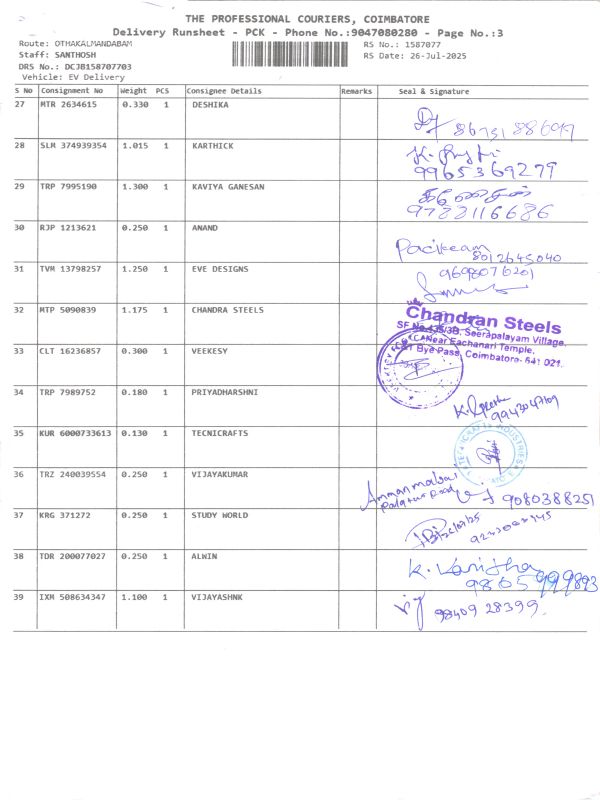 THE PROFESSIONAL COURIERS, COIMBATORE
Delivery Runsheet - PCK - Phone No.:9047080280 - Page No.:3
Route: OTHAKALMANDABAM RS No.: 1587077
Staff: SANTHOSH RS Date: 26-Jul-2025
DRS No.: DCJB158707703
Vehicle: EV Delivery
S No Consignment No Weight PCS Consignee Details Remarks Seal & Signature
27 MTR 2634615 0.330 1 DESHIKA
28 SLM 374939354 1.015 1 KARTHICK
9965369279
29 TRP 7995190 1.300 1 KAVIYA GANESAN
9788116686
30 RJP 1213621 0.250 1 ANAND
8012645040
31 TVM 13798257 1.250 1 EVE DESIGNS
9698076201
32 MTP 5090839 1.175 1 CHANDRA STEELS
Chandran Steels
Seerapalayam Village,
Near Eachanari Temple,
Bye Pass, Coimbatore- 641 021.
33 CLT 16236857 0.300 1 VEEKESY
34 TRP 7989752 0.180 1 PRIYADHARSHNI
35 KUR 6000733613 0.130 1 TECNICRAFTS
36 TRZ 240039554 0.250 1 VIJAYAKUMAR
9080388251
37 KRG 371272 0.250 1 STUDY WORLD
38 TDR 200077027 0.250 1 ALWIN
K. Vanitha
39 IXM 508634347 1.100 1 VIJAYASHNK
98409 28399